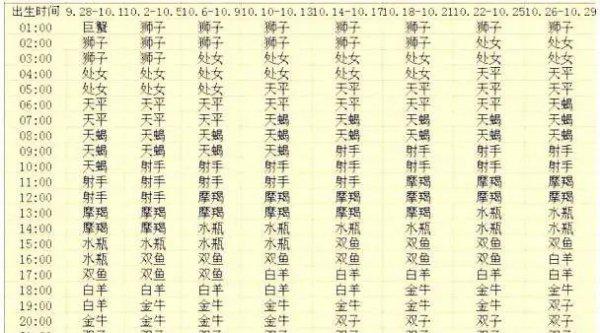 出生时间 9.28-10.1 10.2-10.5 10.6-10.9 10.10-10.13 10.14-10.17 10.18-10.21 10.22-10.25 10.26-10.29
01:00 巨蟹 狮子 狮子 狮子 狮子 狮子 狮子 狮子
02:00 狮子 狮子 狮子 狮子 狮子 狮子 处女 处女
03:00 狮子 狮子 处女 处女 处女 处女 处女 处女
04:00 处女 处女 处女 处女 处女 处女 天平 天平
05:00 处女 处女 处女 天平 天平 天平 天平 天平
06:00 天平 天平 天平 天平 天平 天平 天平 天蝎
07:00 天平 天平 天平 天平 天蝎 天蝎 天蝎 天蝎
08:00 天蝎 天蝎 天蝎 天蝎 天蝎 天蝎 天蝎 天蝎
09:00 天蝎 天蝎 天蝎 天蝎 射手 射手 射手 射手
10:00 天蝎 射手 射手 射手 射手 射手 射手 射手
11:00 射手 射手 射手 射手 射手 摩羯 摩羯 摩羯
12:00 射手 射手 摩羯 摩羯 摩羯 摩羯 摩羯 摩羯
13:00 摩羯 摩羯 摩羯 摩羯 摩羯 摩羯 水瓶 水瓶
14:00 摩羯 摩羯 水瓶 水瓶 水瓶 水瓶 水瓶 水瓶
15:00 水瓶 水瓶 水瓶 水瓶 双鱼 双鱼 双鱼 双鱼
16:00 水瓶 双鱼 双鱼 双鱼 双鱼 双鱼 白羊 白羊
17:00 双鱼 双鱼 双鱼 白羊 白羊 白羊 白羊 白羊
18:00 白羊 白羊 白羊 白羊 白羊 金牛 金牛 金牛
19:00 白羊 金牛 金牛 金牛 金牛 金牛 金牛 双子
20:00 金牛 金牛 金牛 金牛 双子 双子 双子 双子